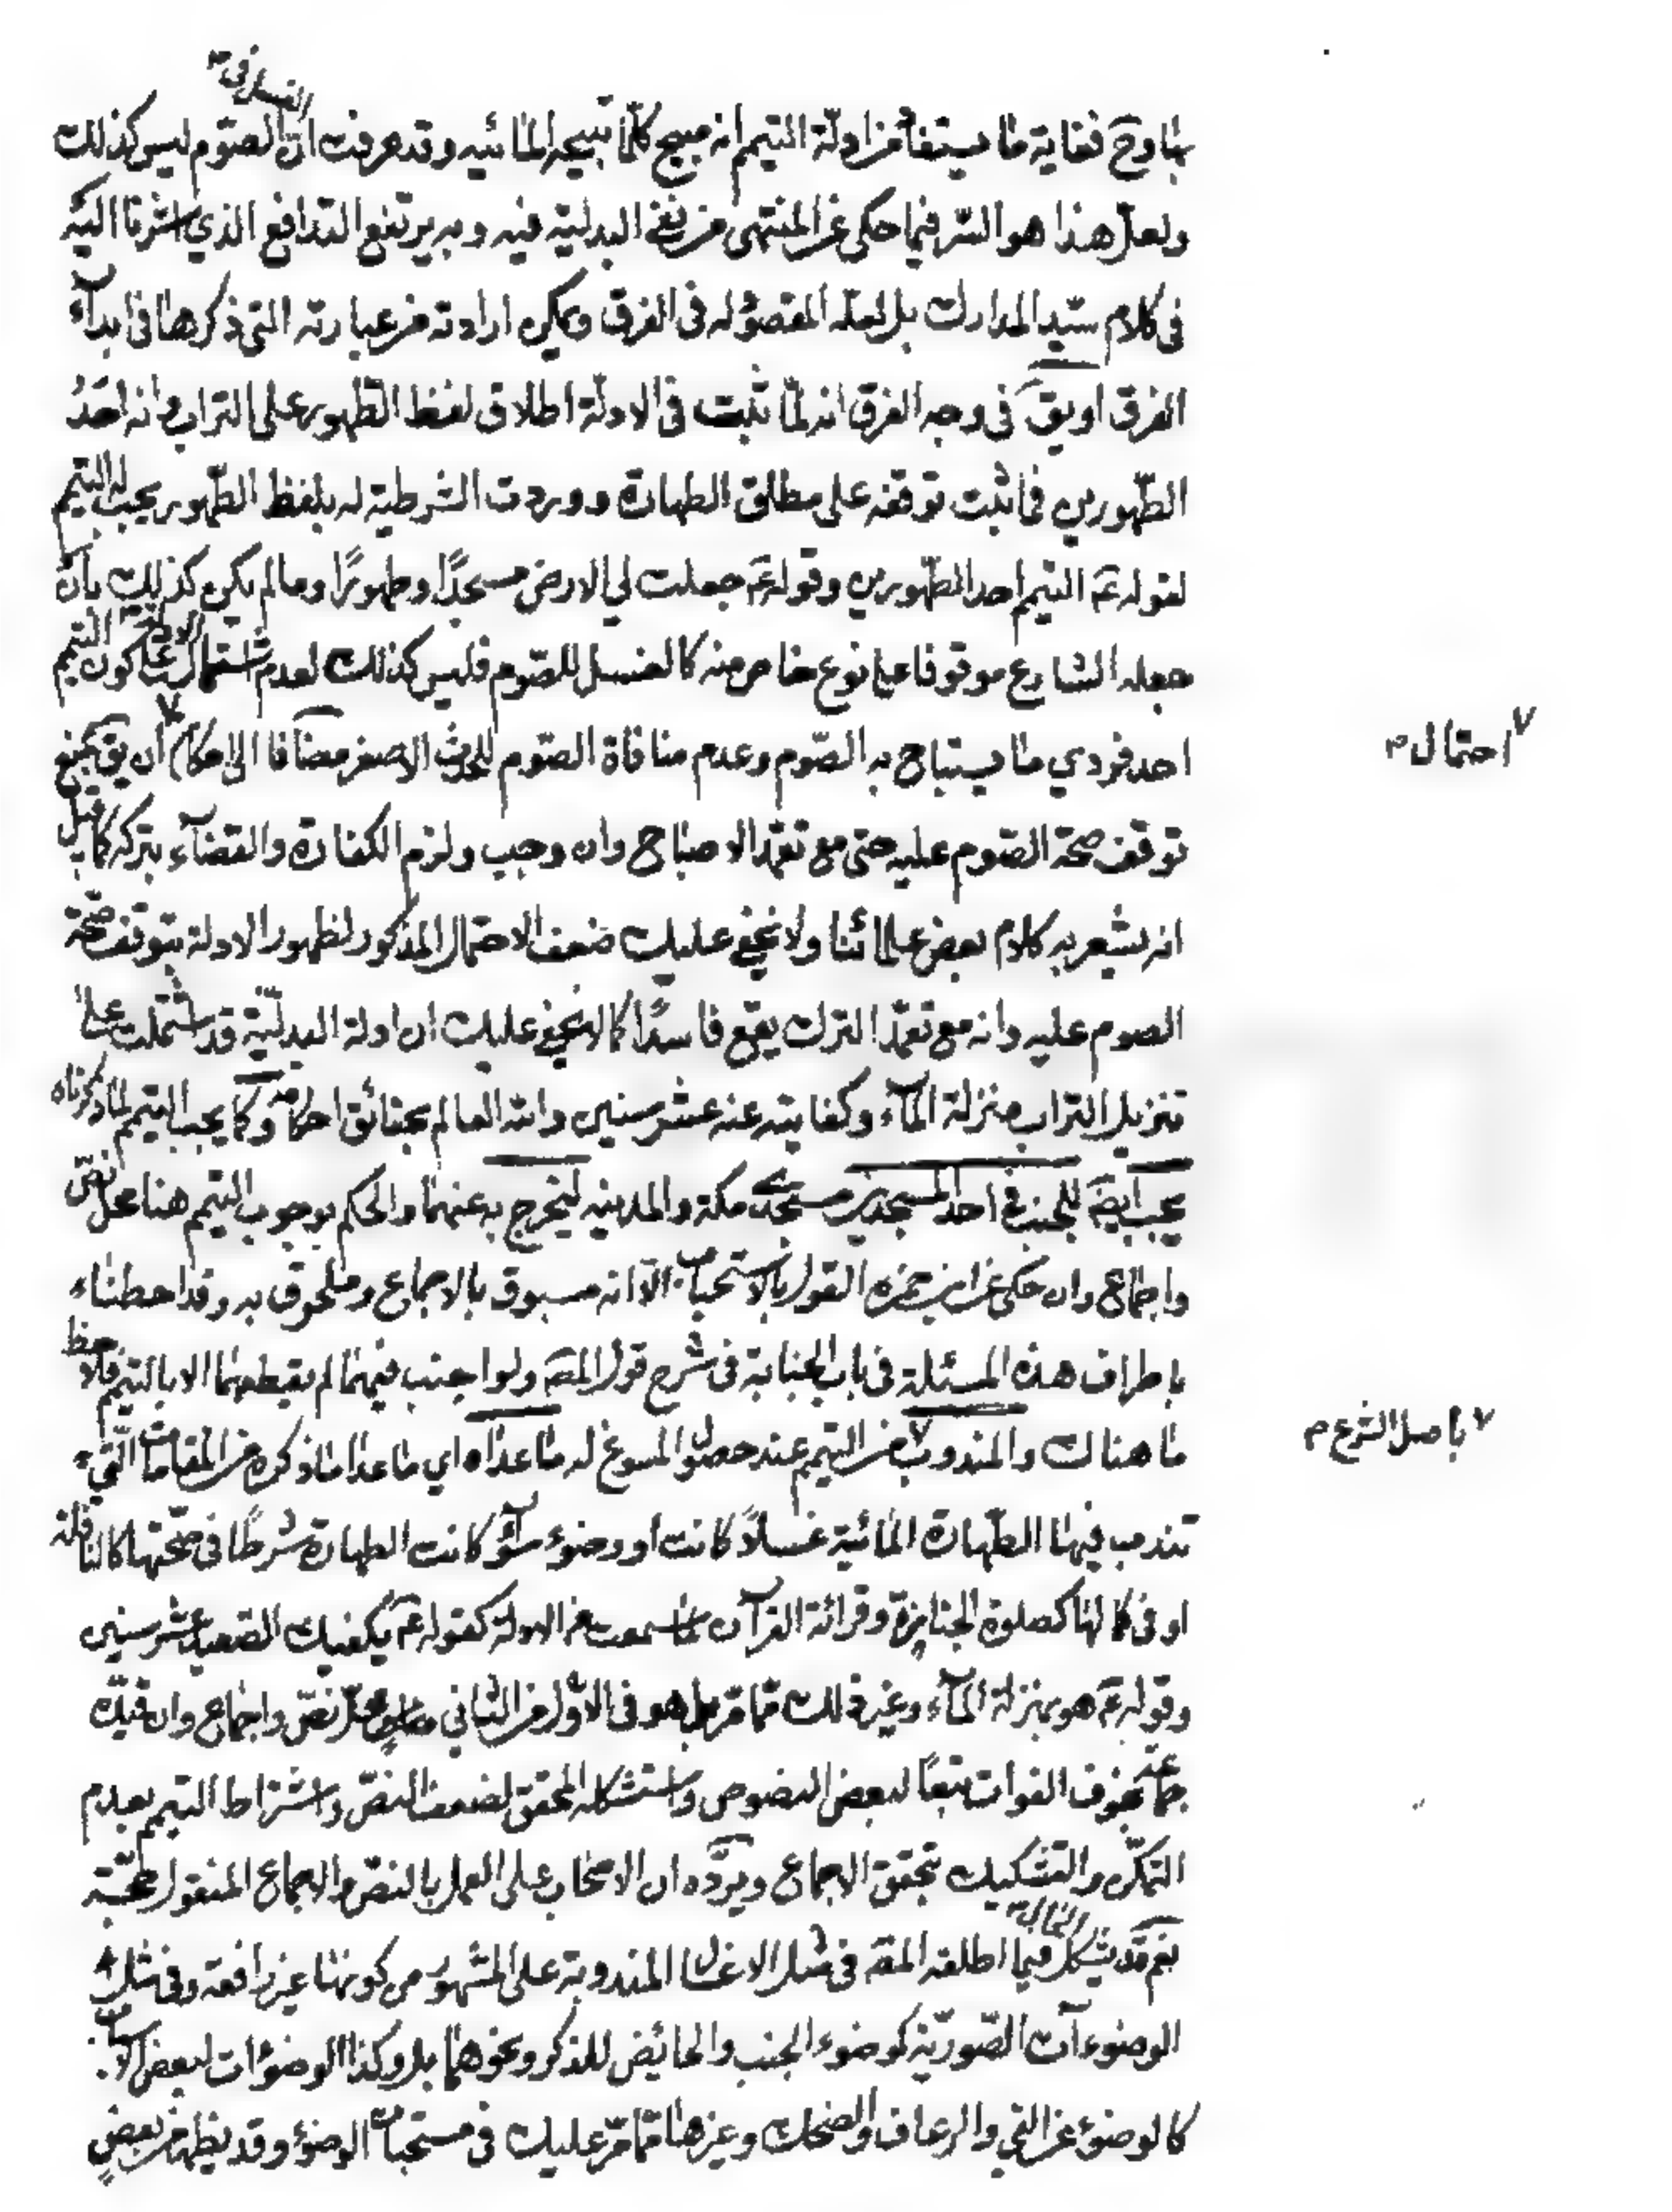 بها وح فغاية ما يستفاد من ادلة التيمم انه مبيح كلما تبيحه المائيه وقد عرفت ان الغسل في الصوم ليس كذلك
ولعل هذا هو السر فيما حكى عن المنتهى من نفى البدلية فيه وبه يرتفع التدافع الذي اشرنا اليه
فى كلام سيد المدارك بل لعله المقصود له فى الفرق ويمكن ارادته من عبارته التى ذكرها فى ابدآء
الفرق او يق فى وجه الفرق انه لما ثبت فى الادلة اطلاق لفظ الطهور على التراب وانه احد
الطهورين فما ثبت توقفه على مطلق الطهارة ووردت الشرطية له بلفظ الطهور يجب له التيمم
لقوله عم التيمم احد الطهورين وقوله عم جعلت لي الارض مسجدًا وطهورًا وما لم يكن كذلك بان
جعله الشارع موقوفا على نوع خاص منه كالغسل للصوم فليس كذلك لعدم اشتمال الادلة على كون التيمم
احد فردي ما يستباح به الصوم وعدم منافاة الصوم للحدث الاصغر مضافا الى امكان ان يق بمنع
٧ احتمال م
توقف صحة الصوم عليه حتى مع تعمد الاصباح وان وجب ولزم الكفارة والقضآء بتركه كما قيل
انه يشعر به كلام بعض علمائنا ولا يخفى عليك ضعف الاحتمال المذكور لظهور الادلة بتوقف صحة
الصوم عليه وانه مع تعمد الترك يقع فاسدًا كما لا يخفى عليك ان ادلة البدلية قد اشتملت على
تنزيل التراب منزلة المآء وكفايته عنه عشر سنين والله العالم بحقائق احكامه وكما يجب التيمم لما ذكرناه
يجب ايضا للجنب فى احد المسجدين مسجد مكة والمدينه ليخرج به عنهما والحكم بوجوب التيمم هنا محل نص
واجماع وان حكى عن ابن حمزه القول بالاستحباب الا انه مسبوق بالاجماع وملحوق به وقد احطنا
باطراف هذه المسئلة فى باب الجنابة فى شرح قول المصـ ولو اجنب فيهما لم يقطعهما الا بالتيمم فلاحظ
ما هناك والمندوب من التيمم عند حصول المسوغ له ما عداه اي ما عدا ما ذكره من المقامات التي
٧ باصل الشرع م
تندب فيها الطهارة المائية غسلاً كانت او وضوء سوآء كانت الطهارة شرطًا فى صحتها كالنافلة
او فى كمالها كصلوة الجنايزة وقرائة القرآن لما سمعت من الادلة كقوله عم يكفيك الصعيد عشر سنين
وقوله عم هو بمنزلة المآء وغير ذلك مما مر بل هو فى الاول من الثاني محل نص واجماع وان قيده
جماعة بخوف الفوات تبعًا لبعض النصوص واستشكله المحقق لضعف النص واشتراط التيمم بعدم
التمكن والتشكيك بتحقق الاجماع ويرده ان الاصحاب على العمل بالنص والاجماع المنقول حجة
نعم قد يشكل الحال فيما اطلقه المصـ فى مثل الاغسال المندوبة على المشهور من كونها غير رافعة وفى مثل
الوضوءآت الصورية كوضوء الجنب والحائض للذكر ونحوهما بل وكذا الوضوءات لبعض الاسباب
كالوضوء عن القي والرعاف والضحك وغيرها مما مر عليك فى مستحبات الوضوء وقد يظهر من بعض